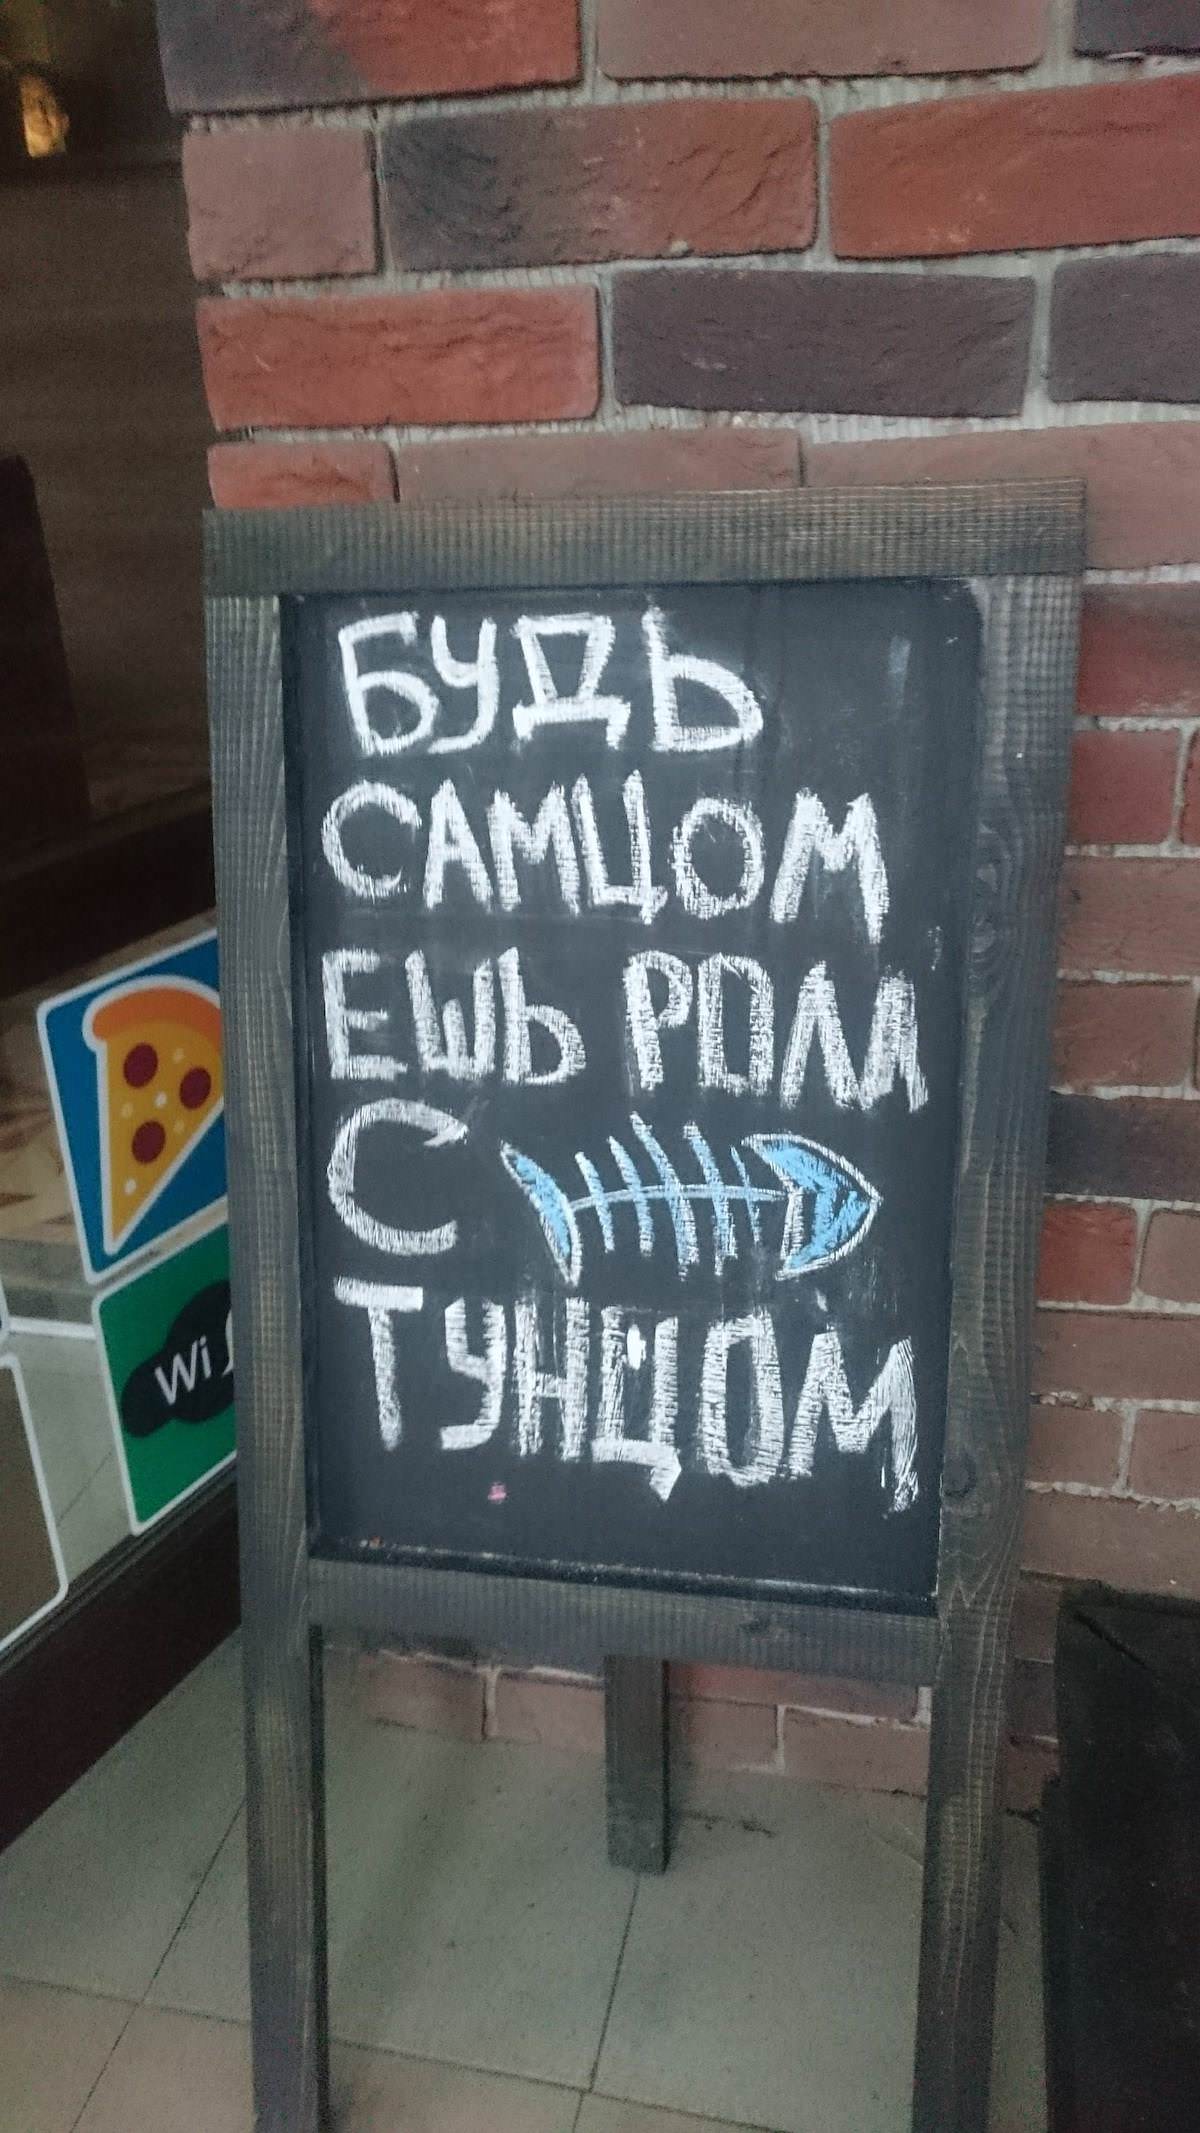 БУДЬ
САМЦОМ
ЕШЬ РОЛЛ
С
ТУНЦОМ
Wi